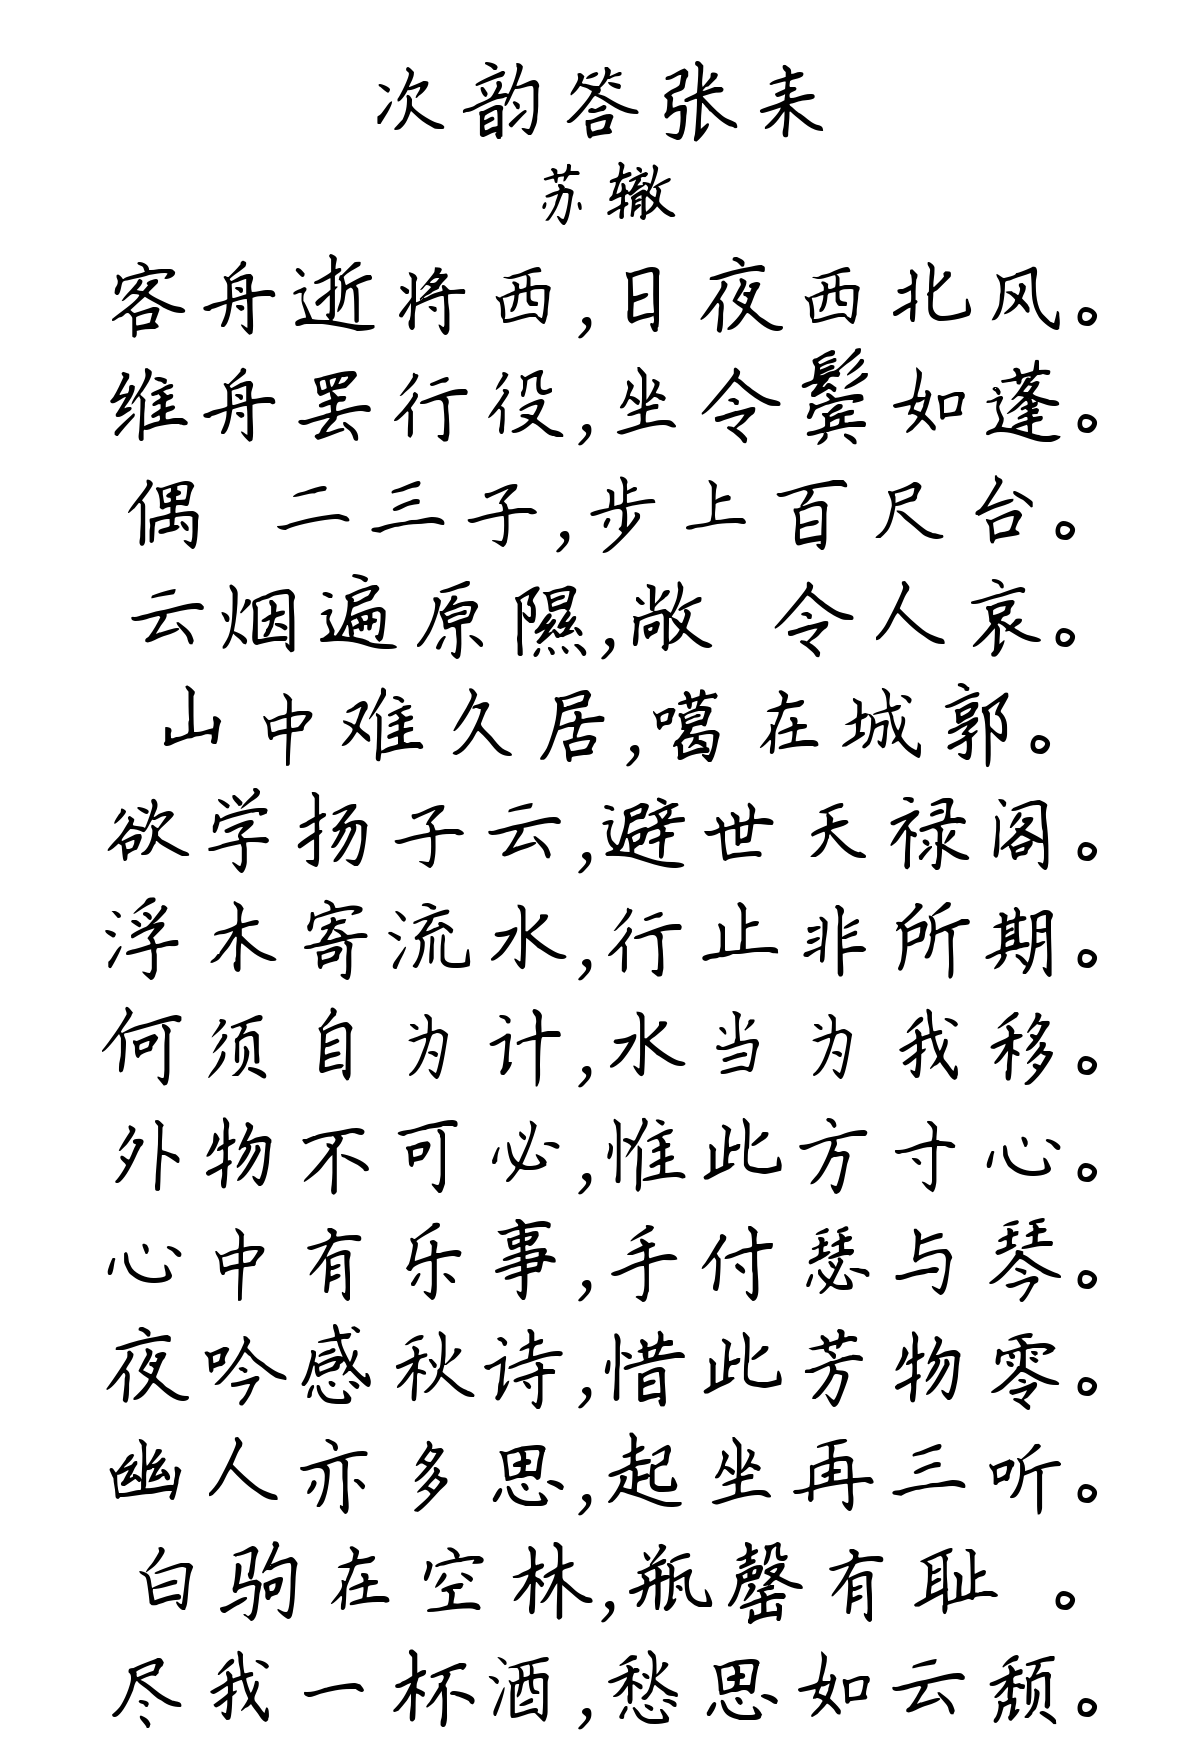 次韵答张耒
苏辙
客舟逝将西,日夜西北风。
维舟罢行役,坐令鬓如蓬。
偶 二三子,步上百尺台。
云烟遍原隰,敞 令人哀。
山中难久居,噶在城郭。
欲学扬子云,避世天禄阁。
浮木寄流水,行止非所期。
何须自为计,水当为我移。
外物不可必,惟此方寸心。
心中有乐事,手付瑟与琴。
夜吟感秋诗,惜此芳物零。
幽人亦多思,起坐再三听。
白驹在空林,瓶罄有耻 。
尽我一杯酒,愁思如云颓。